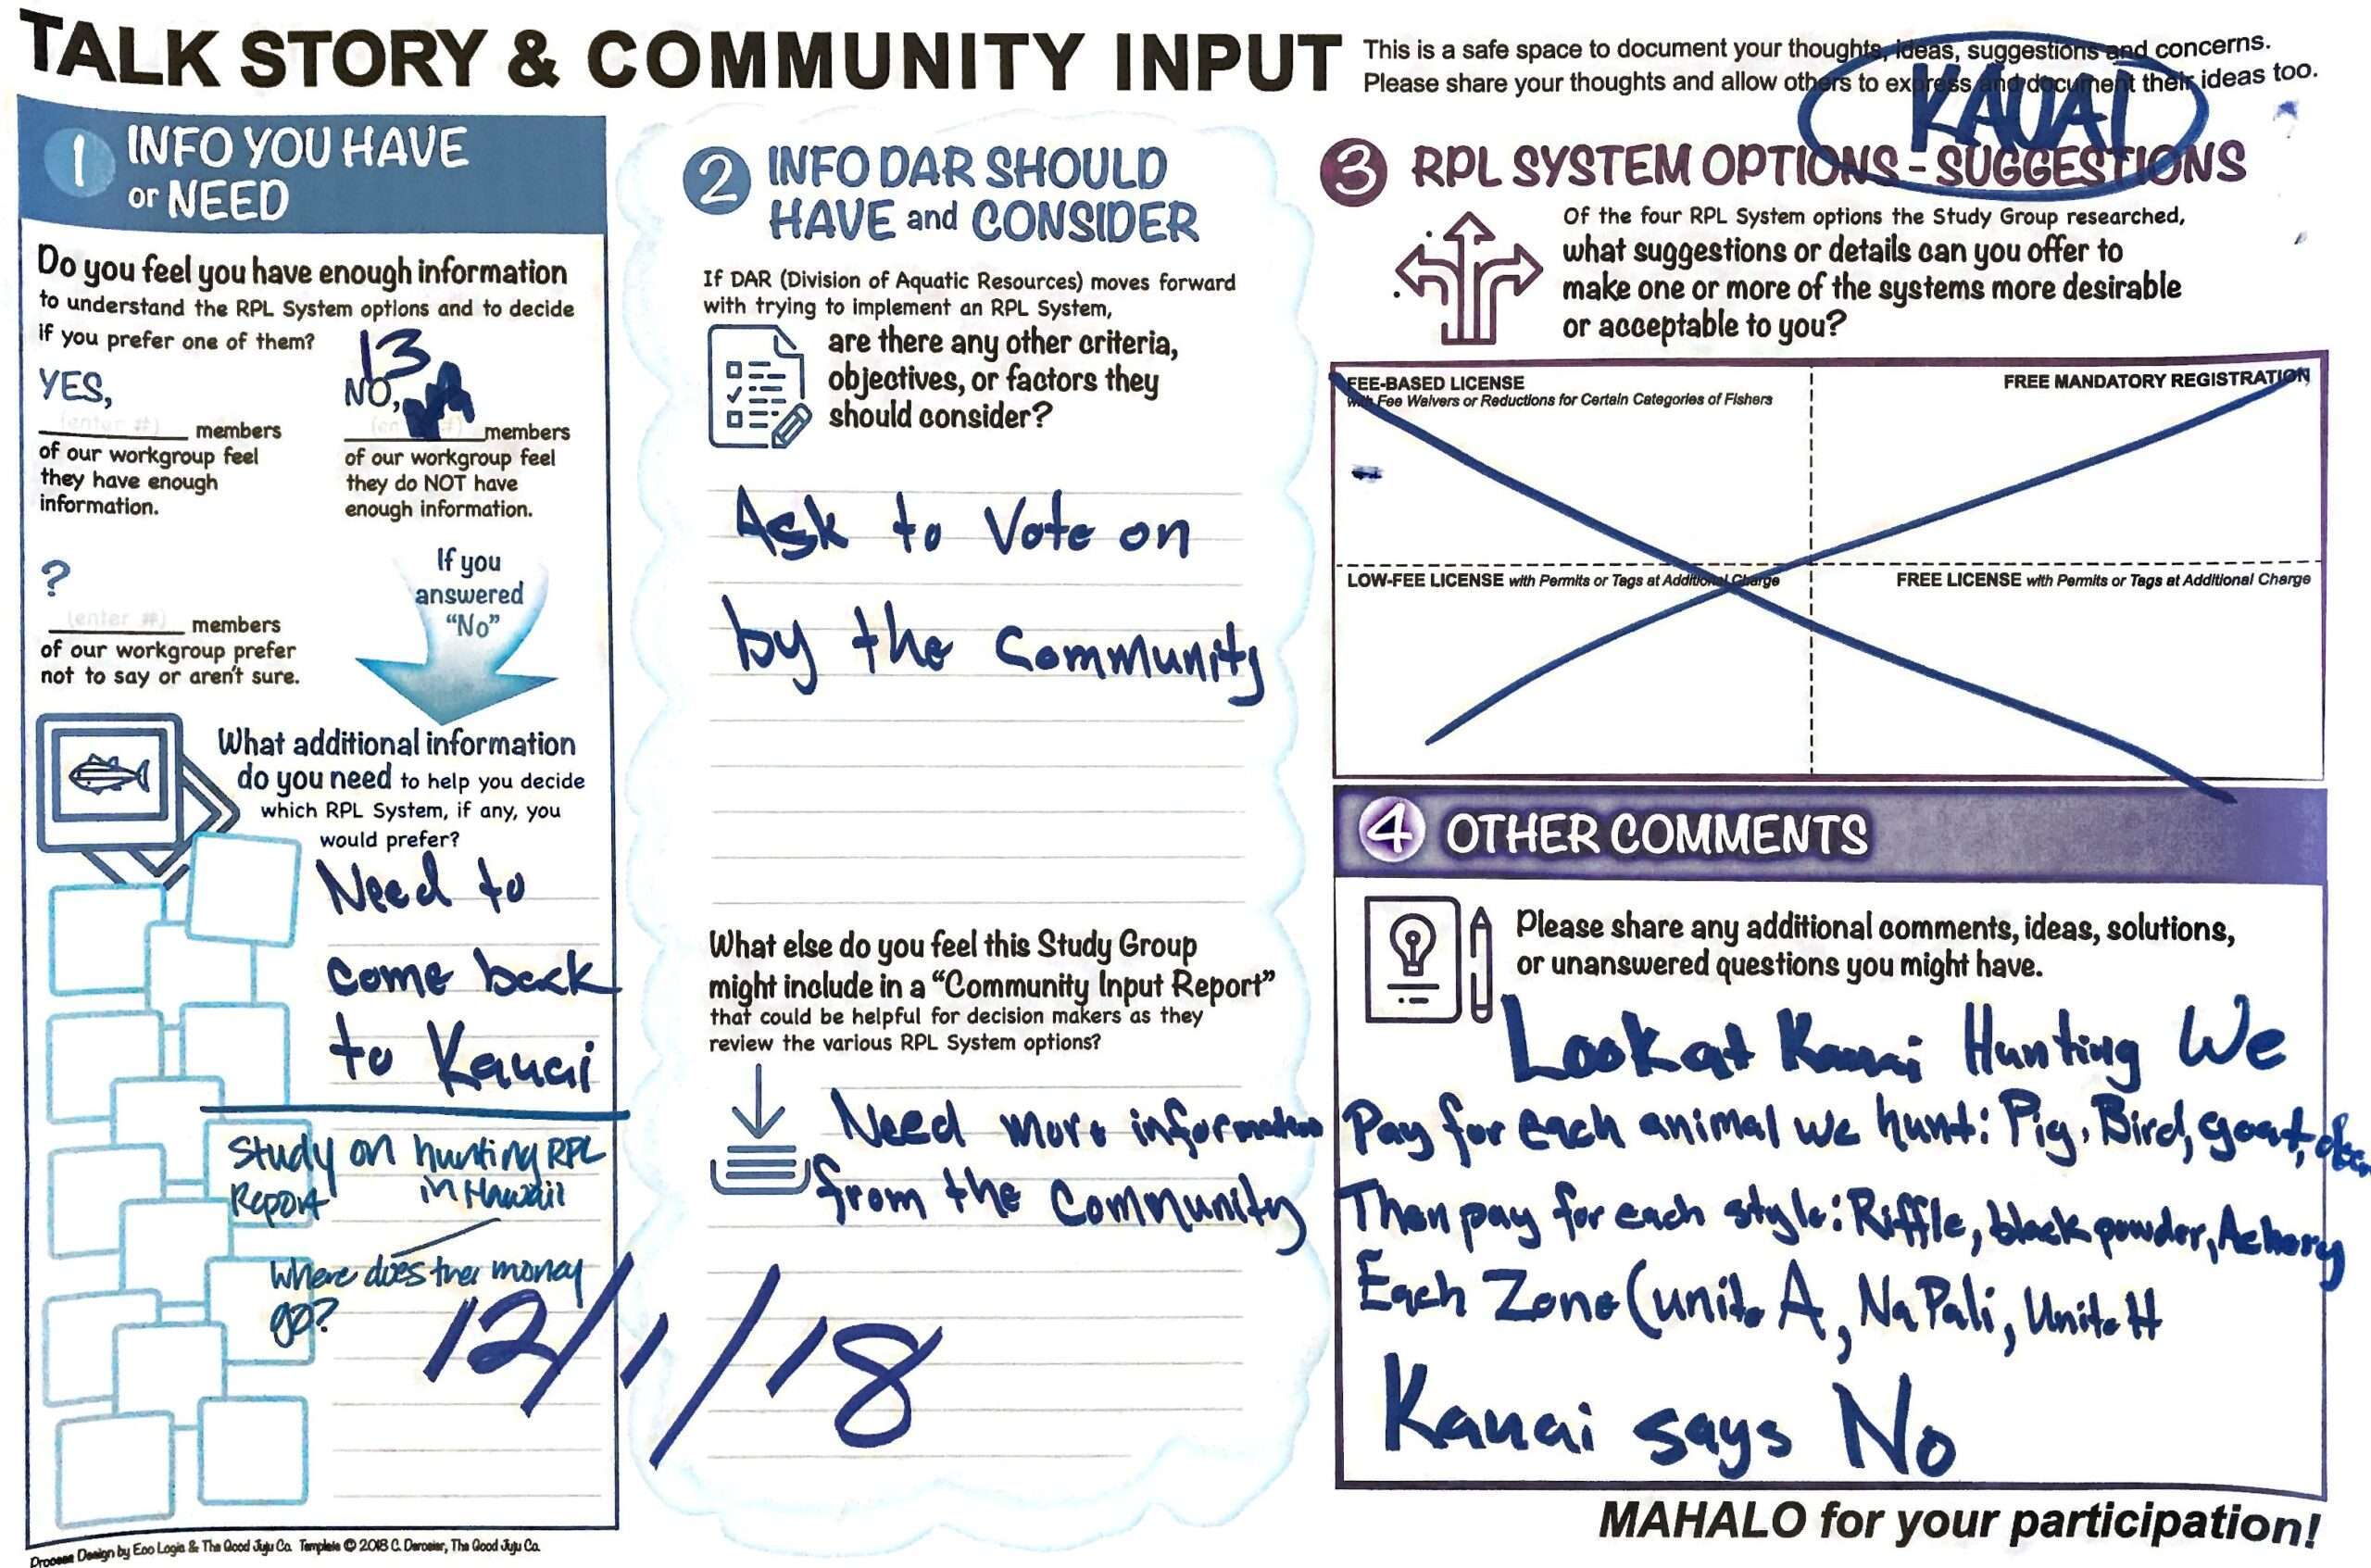 TALK STORY & COMMUNITY INPUT
This is a safe space to document your thoughts, ideas, suggestions and concerns.
Please share your thoughts and allow others to express and document their ideas too.
KAUAI
1 INFO YOU HAVE
or NEED
Do you feel you have enough information
to understand the RPL System options and to decide
if you prefer one of them?
YES,
(enter #) members
of our workgroup feel
they have enough
information.
13
NO,
members
of our workgroup feel
they do NOT have
enough information.
?
(enter #) members
of our workgroup prefer
not to say or aren't sure.
If you
answered
"No"
What additional information
do you need to help you decide
which RPL System, if any, you
would prefer?
Need to
come back
to Kauai
Study on hunting RPL
Report in Hawaii
Where does the money
go?
12/1/18
2 INFO DAR SHOULD
HAVE and CONSIDER
If DAR (Division of Aquatic Resources) moves forward
with trying to implement an RPL System,
are there any other criteria,
objectives, or factors they
should consider?
Ask to Vote on
by the Community
What else do you feel this Study Group
might include in a "Community Input Report"
that could be helpful for decision makers as they
review the various RPL System options?
Need more information
from the Community
3 RPL SYSTEM OPTIONS - SUGGESTIONS
Of the four RPL System options the Study Group researched,
what suggestions or details can you offer to
make one or more of the systems more desirable
or acceptable to you?
FEE-BASED LICENSE
with Fee Waivers or Reductions for Certain Categories of Fishers
FREE MANDATORY REGISTRATION
LOW-FEE LICENSE with Permits or Tags at Additional Charge
FREE LICENSE with Permits or Tags at Additional Charge
4 OTHER COMMENTS
Please share any additional comments, ideas, solutions,
or unanswered questions you might have.
Look at Kauai Hunting We
Pay for each animal we hunt: Pig, Bird, goat, deer
Then pay for each style: Riffle, black powder, Achery
Each Zone (unit. A, Na Pali, Unit. H
Kauai says No
MAHALO for your participation!
Process Design by Eoo Logic & The Good Juju Co. Template © 2018 C. Derosier, The Good Juju Co.